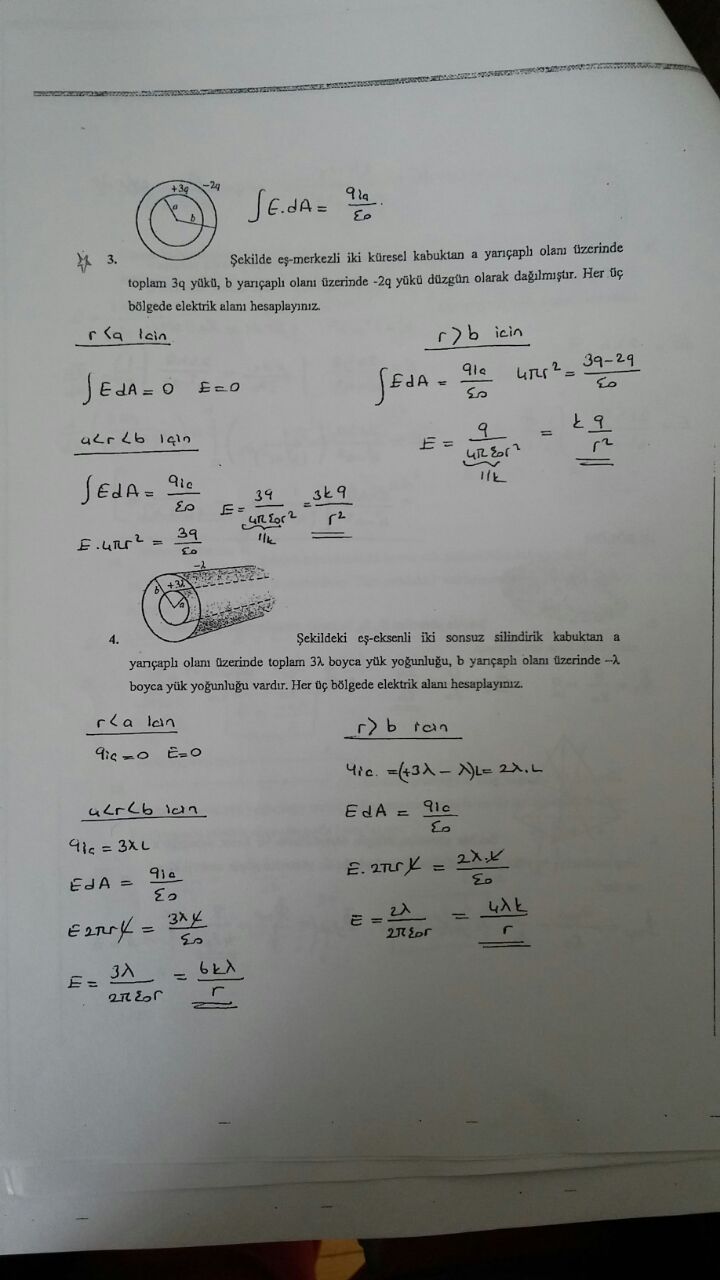 +3q -2q
a
b
∫E.dA = qiç/ε₀
3. Şekilde eş-merkezli iki küresel kabuktan a yarıçaplı olanı üzerinde
toplam 3q yükü, b yarıçaplı olanı üzerinde -2q yükü düzgün olarak dağılmıştır. Her üç
bölgede elektrik alanı hesaplayınız.
r<a için
∫EdA = 0 E=0
a<r<b için
∫EdA = qiç/ε₀
E.4πr² = 3q/ε₀
E = 3q/4πε₀r² = 3kq/r²
1/k
r>b için
∫EdA = qiç/ε₀ 4πr² = 3q-2q/ε₀
E = q/4πε₀r² = kq/r²
1/k
-λ
b +3λ
a
4. Şekildeki eş-eksenli iki sonsuz silindirik kabuktan a
yarıçaplı olanı üzerinde toplam 3λ boyca yük yoğunluğu, b yarıçaplı olanı üzerinde -λ
boyca yük yoğunluğu vardır. Her üç bölgede elektrik alanı hesaplayınız.
r<a için
qiç=0 E=0
a<r<b için
qiç = 3λL
EdA = qiç/ε₀
E2πrL = 3λL/ε₀
E = 3λ/2πε₀r = 6kλ/r
r>b için
qiç. =(+3λ-λ)L= 2λ.L
EdA = qiç/ε₀
E.2πrL = 2λ.L/ε₀
E = 2λ/2πε₀r = 4λk/r